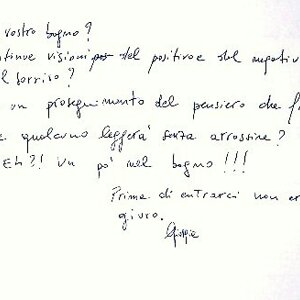 vostro bagno?
tinue visioni del positivo e del negativ
l sorriso?
un proseguimento del pensiero che f
e qualcuno leggerà senza arrossire?
Eh?! Un po' nel bagno!!!
Prima di entrarci non er
giuro.
Giorgia